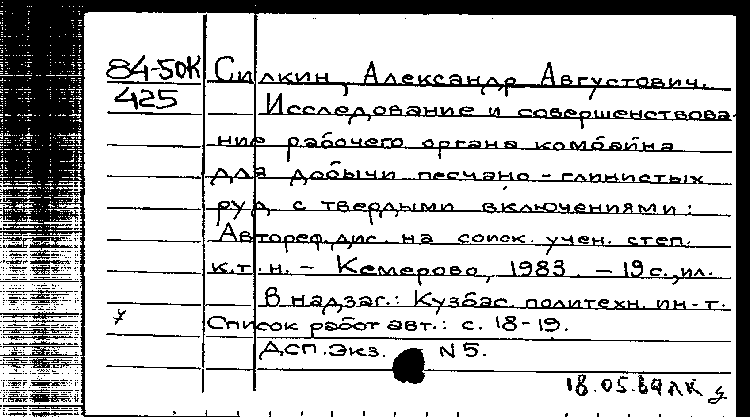 84-50К Силкин, Александр Августович.
425 Исследование и совершенствова-
ние рабочего органа комбайна
для добычи песчано-глинистых
руд с твердыми включениями:
Автореф. дис. на соиск. учен. степ.
к.т.н. - Кемерово, 1983. - 19 с., ил.
В надзаг.: Кузбас. политехн. ин-т.
Список работ авт.: с. 18-19.
ДСП. Экз. N 5.
18.05.84 ЛК